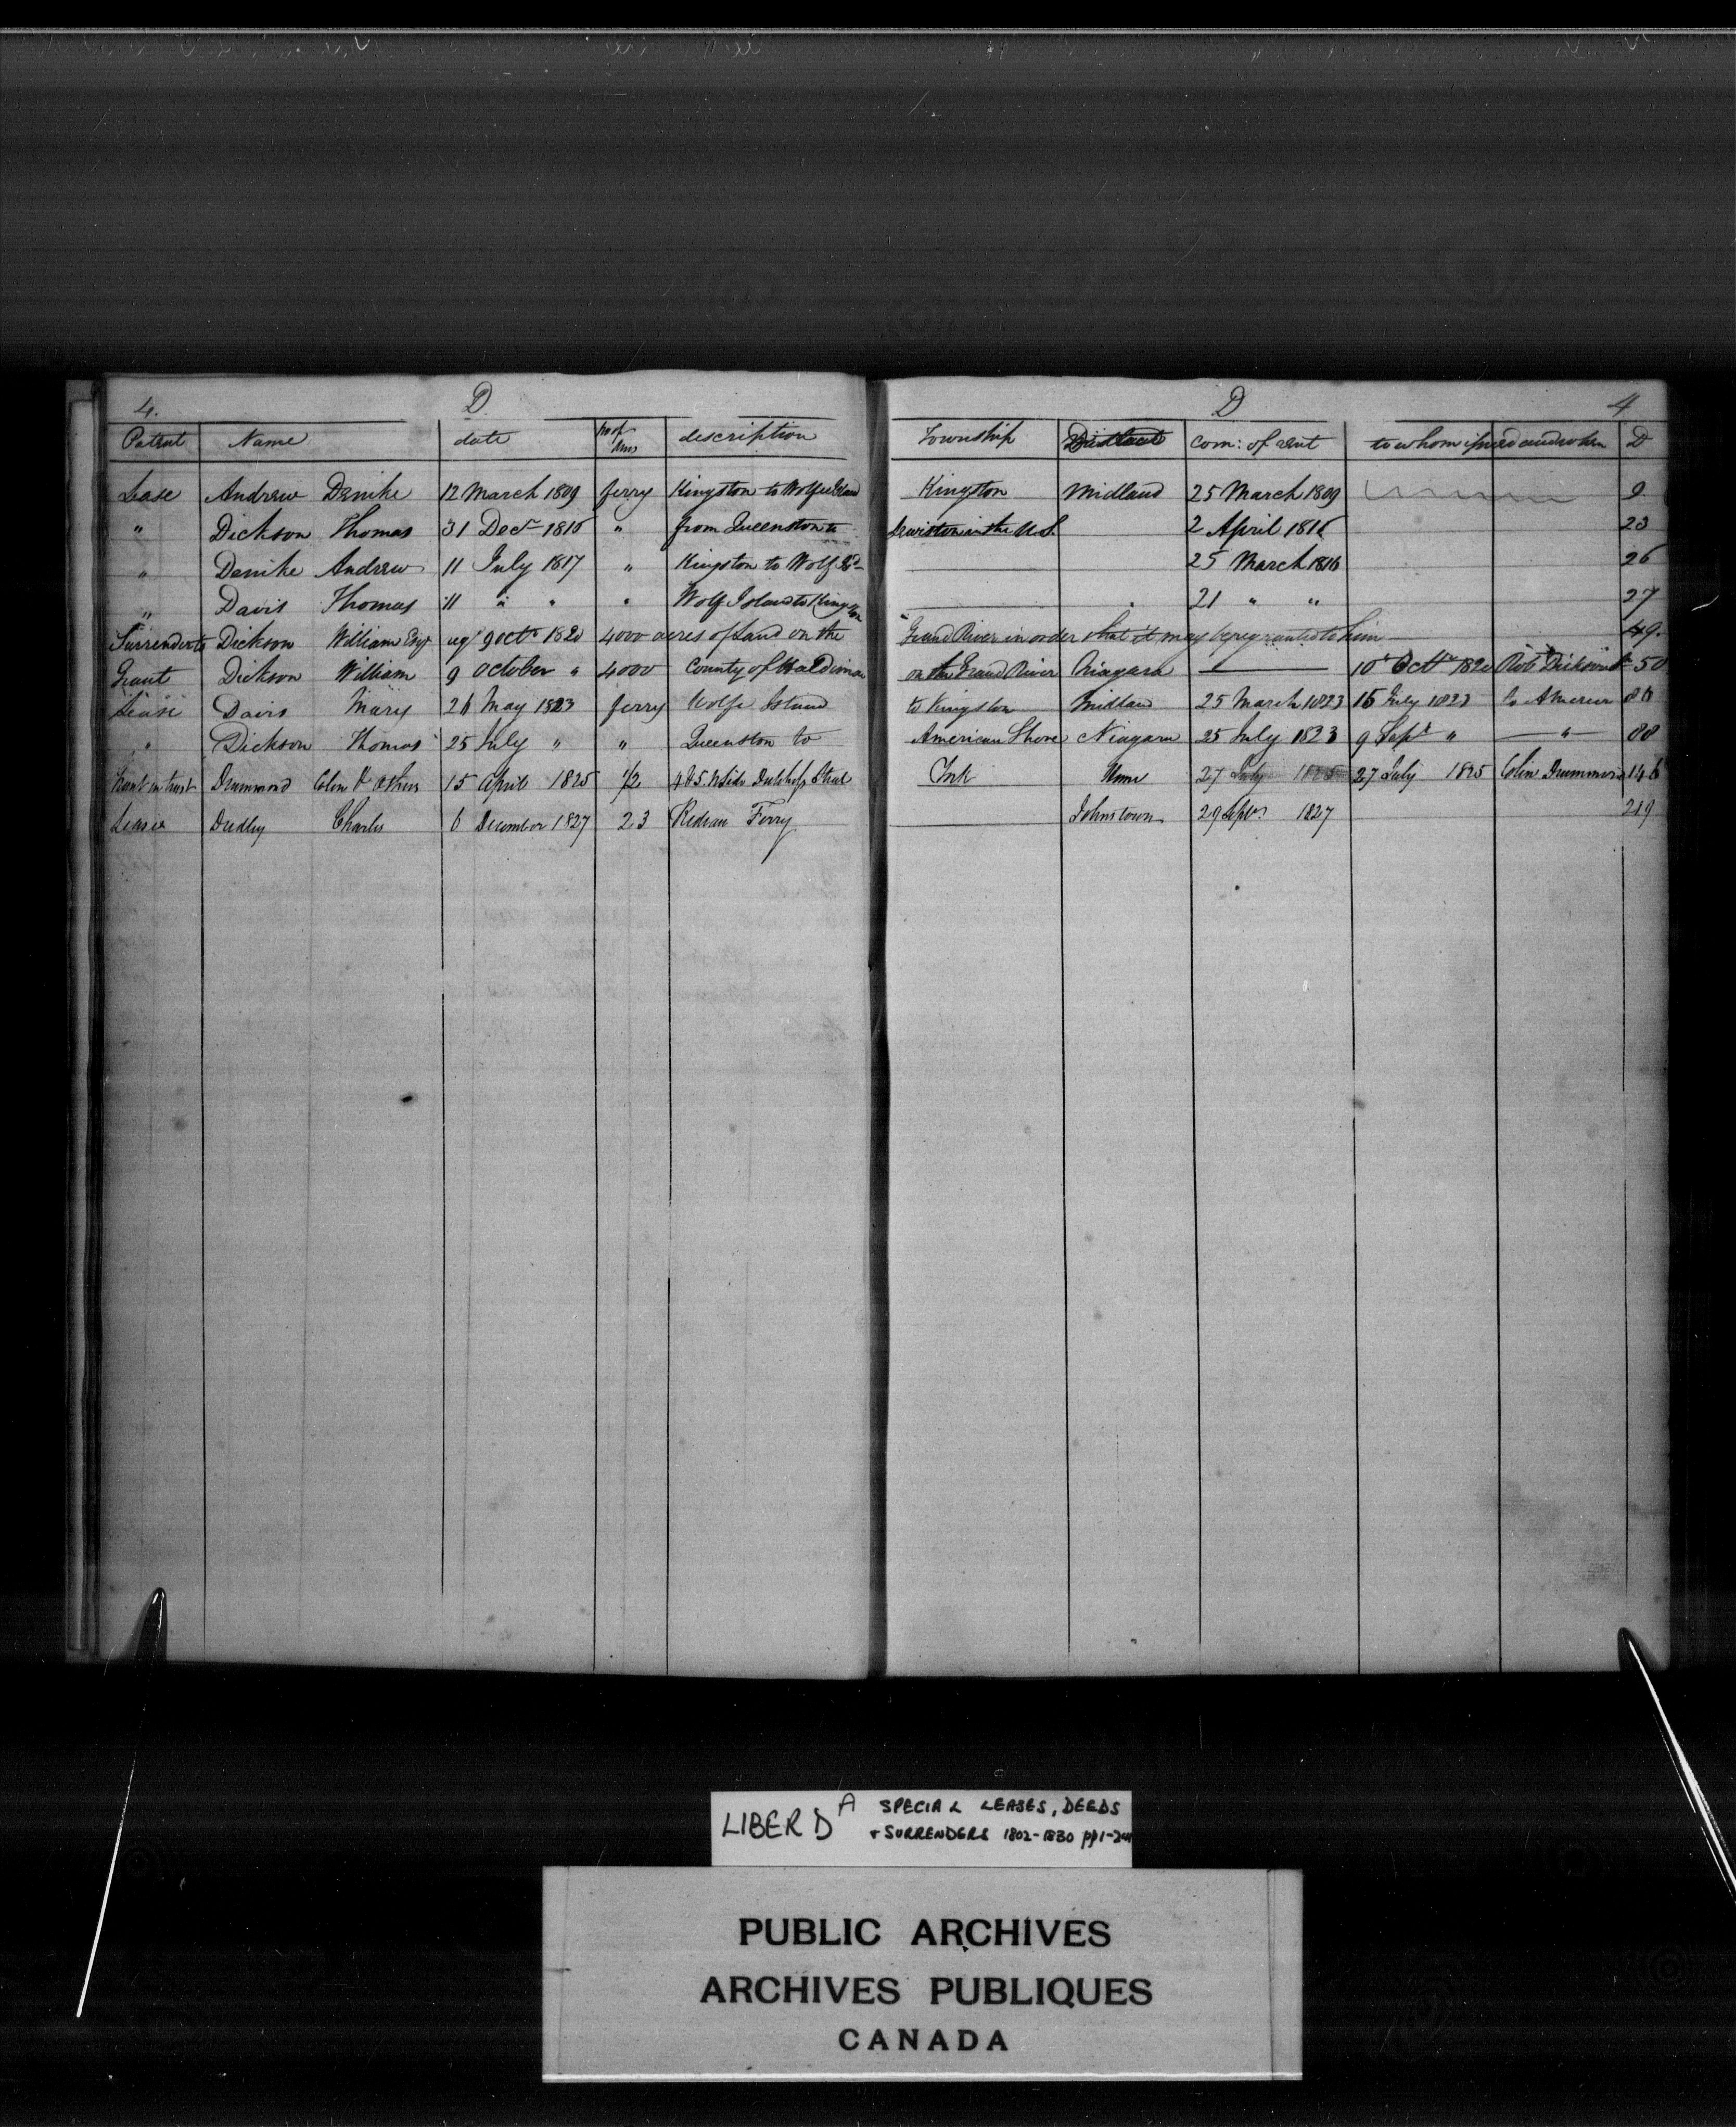 4. D
Patent Name date No of Acres description
Lease Andrew Denike 12 March 1809 ferry Kingston to Wolfe Island
" Dickson Thomas 31 Decr 1816 " from Queenston to
" Denike Andrew 11 July 1817 " Kingston to Wolf Isd
" Davis Thomas 11 " " " Wolf Island to Kingston
Surrender to Dickson William Esqr 9 Octr 1820 4000 acres of Land on the
Grant Dickson William 9 October " 4000 County of Haldiman
Lease Davis Mary 26 May 1823 ferry Wolfe Island
" Dickson Thomas 25 July " " Queenston to
Grant in trust Drummond Colin & others 15 April 1825 1/2 4 & 5 N Side Street
Lease Dudley Charles 6 December 1827 23 Rideau Ferry
D 4
Township District com: of rent to whom issued and when D
Kingston Midland 25 March 1809 9
Lewiston in the U.S. 2 April 1816 23
25 March 1816 26
21 " " 27
Grand River in order that it may be regranted to him 49.
on the Grand River Niagara 10 Octr 1820 Robt Dickson 50
to Kingston Midland 25 March 1823 15 July 1823 86
American Shore Niagara 25 July 1823 9 Sept " " 88
York Home 27 July 1825 27 July 1825 Colin Drummond 146
Johnstown 29 Septr 1827 219
LIBER D A SPECIAL LEASES, DEEDS
+ SURRENDERS 1802-1830 pp1-244
PUBLIC ARCHIVES
ARCHIVES PUBLIQUES
CANADA